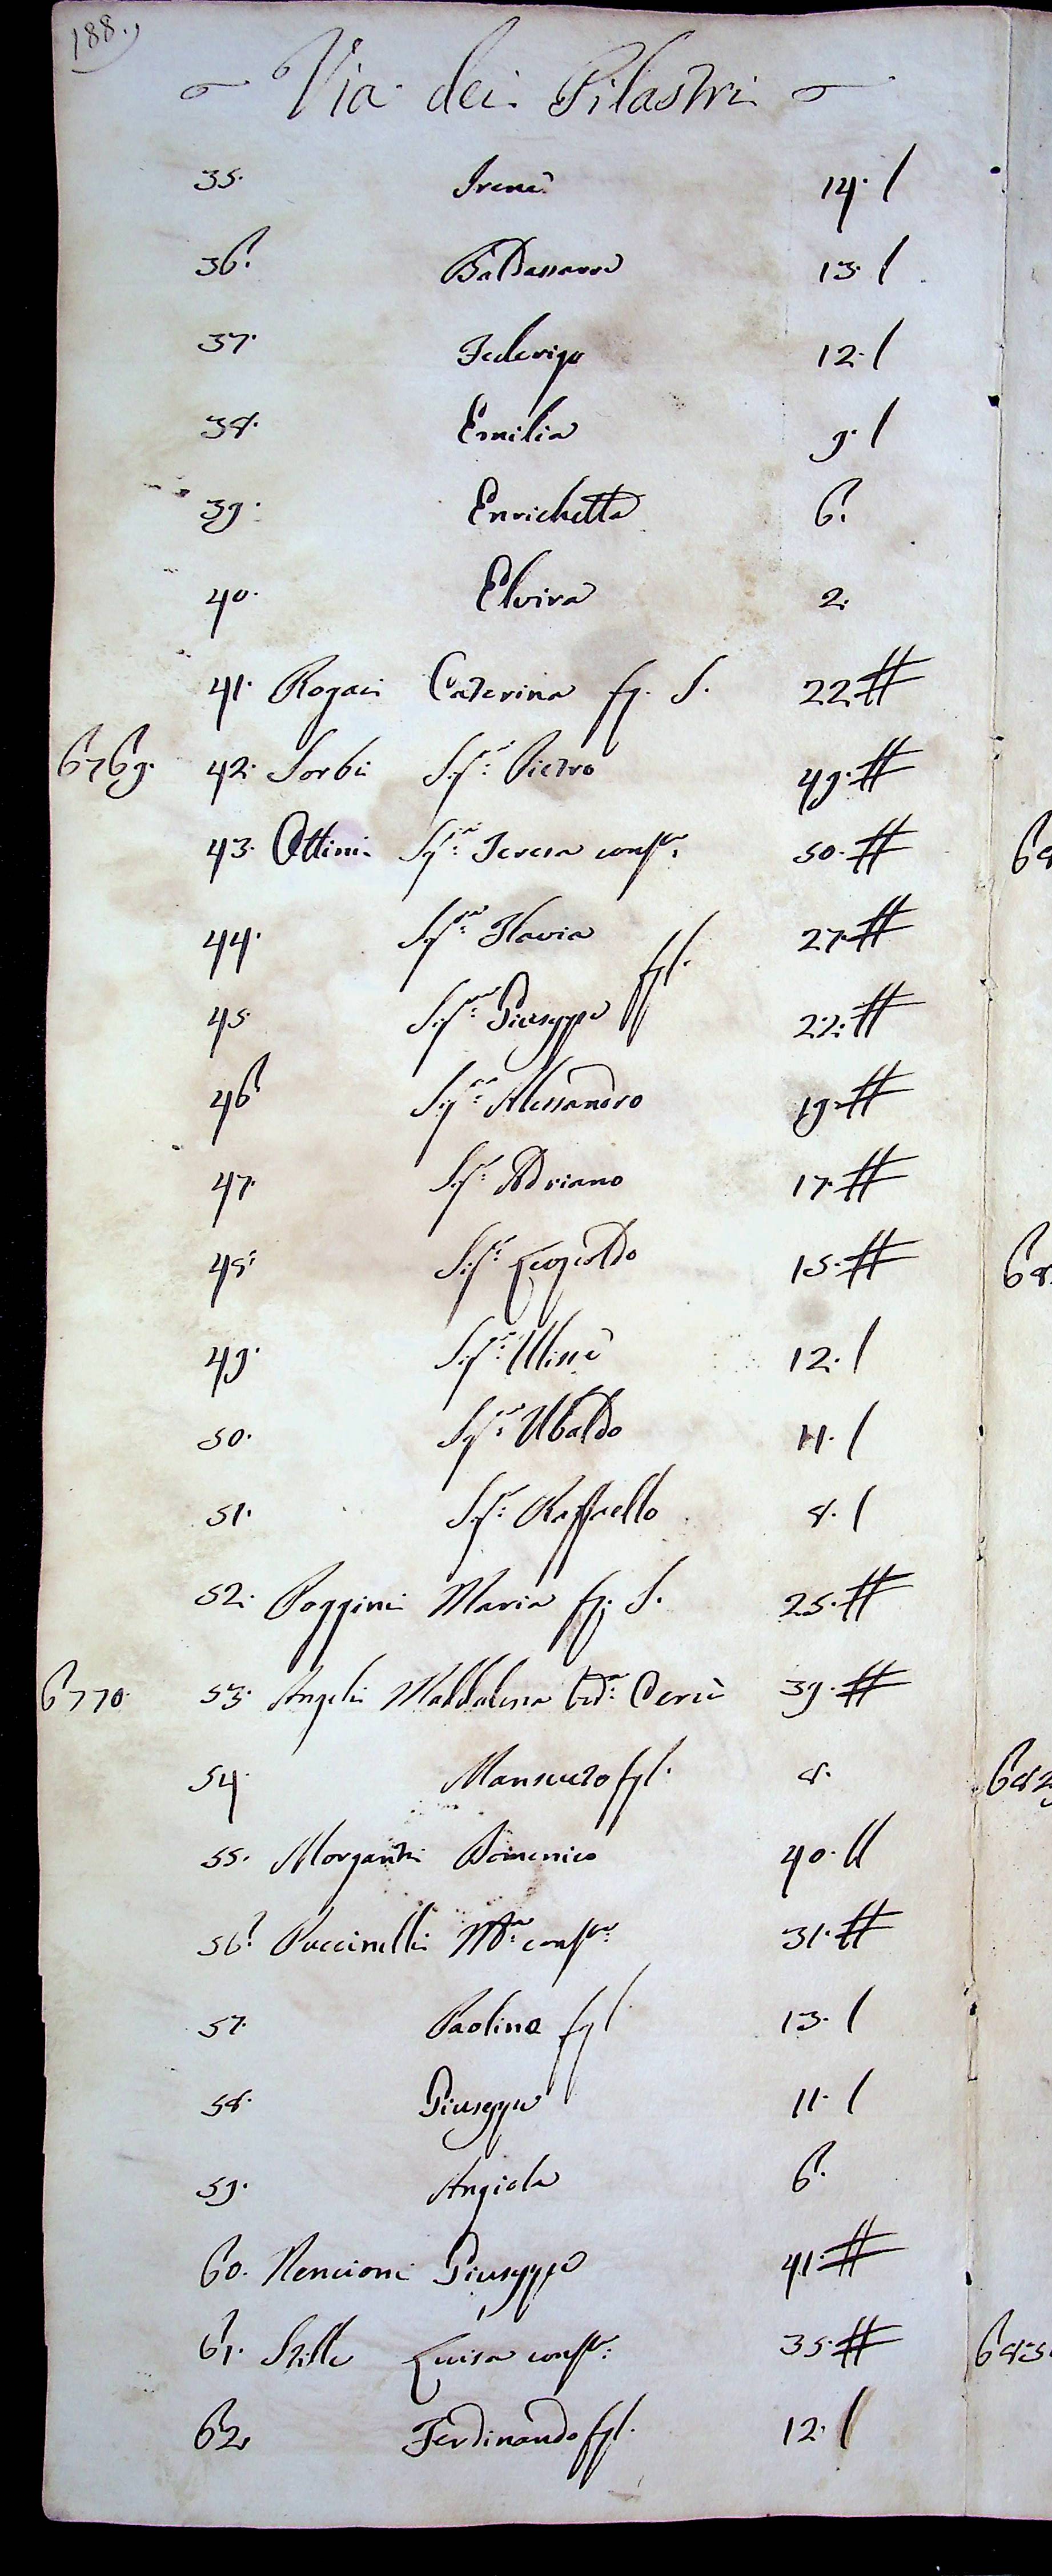 188.
Via dei Pilastri
35. Irene 14. /
36. Baldassarre 13. /
37. Federigo 12. /
38. Emilia 9. /
39. Enrichetta 6.
40. Elvira 2.
41. Rogai Caterina fg. S. 22 #
6769. 42. Sorbi Sigr: Pietro 49. #
43. Ottini Sigra: Teresa consrt: 50. #
44. Sigra: Flavia 27. #
45. Sigr: Giuseppe fgl. 22. #
46 Sigr: Alessandro 19. #
47. Sigr: Adriano 17. #
48. Sigr: Leopoldo 15. #
49. Sigr: Ulisse 12. /
50. Sigr: Ubaldo 11. /
51. Sigr: Raffaello 8. /
52. Poggini Maria fg. S. 25. #
6770. 53. Angeli Maddalena Vda: 39. #
54. Mansueto fgl. 8.
55. Morganti Domenico 40. //
56. Puccinelli Ma: consrt: 31. #
57. Paolina fgl. 13. /
58. Giuseppe 11. /
59. Angiola 6.
60. Nencioni Giuseppe 41. #
61. Luisa consrt: 35. #
62. Ferdinando fgl. 12. /